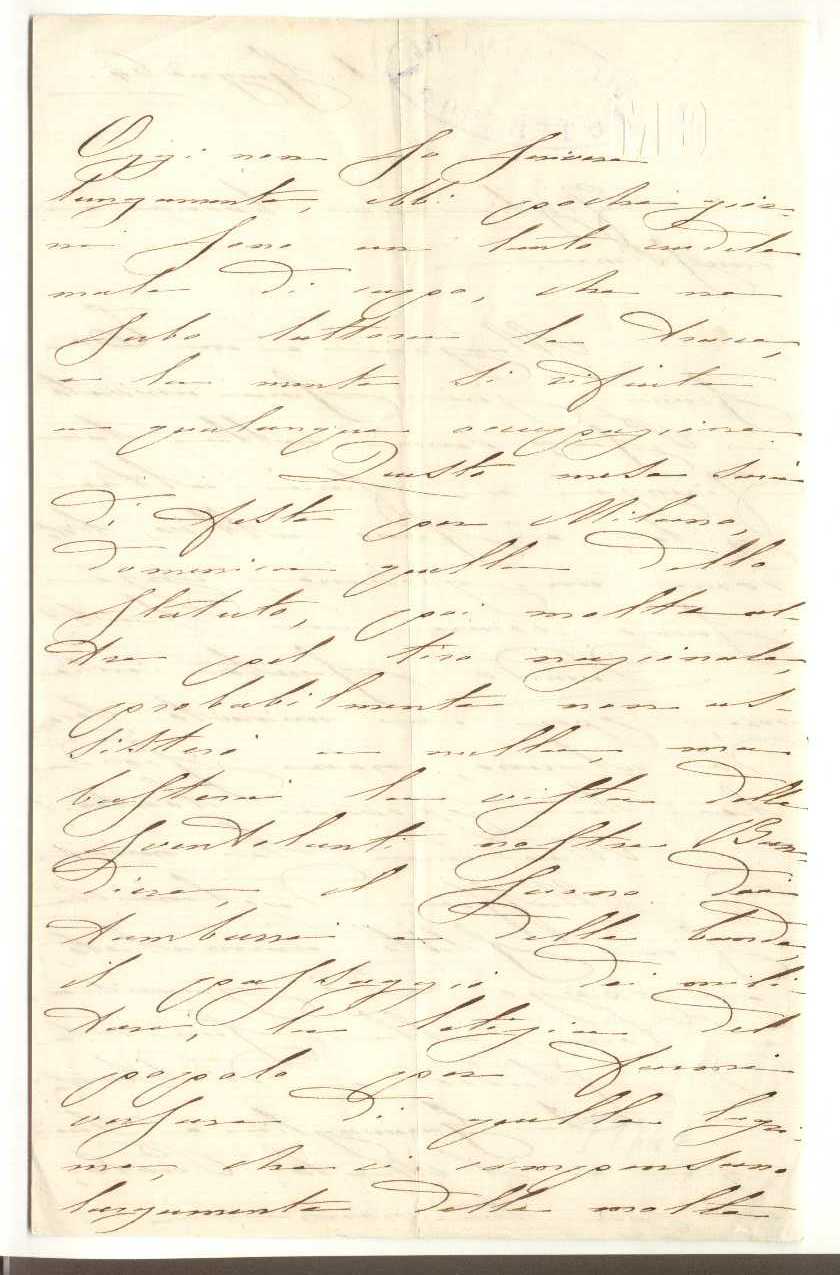 Oggi non so scrivere
lungamente, Ebbi pochi gior-
ni sono un tanto crudele
male di capo, che ne
serbo tuttora le tracce,
e la mente si rifiuta
a qualunque occupazione
Questo mese sarà
di festa per Milano,
domenica quella dello
Statuto, poi molte al-
tre pel tiro nazionale,
probabilmente non as-
sisterò a nulla, ma
basterà la vista delle
sventolanti nostre Ban-
diere, il suono dei
tamburri e delle bande,
il passaggio dei mili-
tari, la letizia del
popolo per farmi
versare di quelle lagri-
me, che ci compensano
largamente delle molte